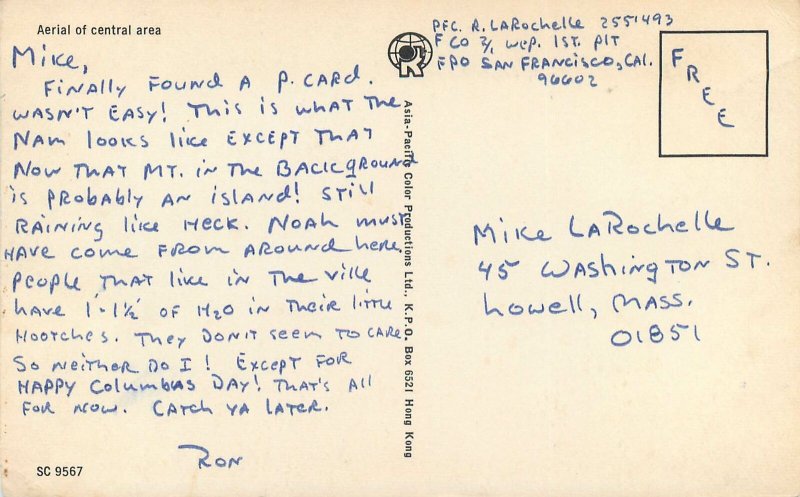 Aerial of central area
Mike,
Finally found a P. Card.
Wasn't easy! This is what the
Nam looks like except that
now that Mt. in the background
is probably an island! Still
raining like heck. Noah must
have come from around here.
People that live in the ville
have 1'-1½' of H2O in their little
hootches. They don't seem to care
so neither do I! Except for
Happy Columbus Day! That's all
for now. Catch ya later.
Ron
SC 9567
Asia-Pacific Color Productions Ltd., K.P.O. Box 6521 Hong Kong
PFC. R. LaRochelle 2551493
F Co 2/, Wep. 1st. Plt
FPO San Francisco, Cal.
96602
FREE
Mike LaRochelle
45 Washington St.
Lowell, Mass.
01851